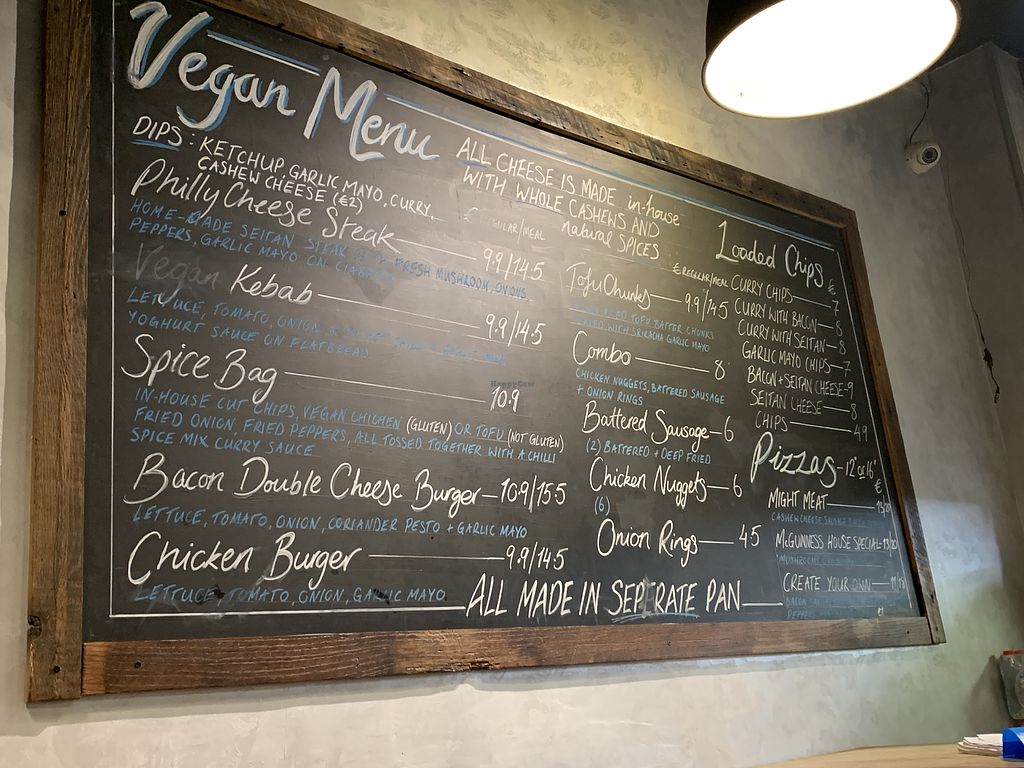 Vegan Menu
DIPS: KETCHUP, GARLIC MAYO, CURRY,
CASHEW CHEESE (€2)
ALL CHEESE IS MADE in-house
WITH WHOLE CASHEWS AND
natural SPICES
Philly Cheese Steak 9.9/14.5
HOME-MADE SEITAN, STEAK WITH FRESH MUSHROOM, ONIONS
PEPPERS, GARLIC MAYO ON
Vegan Kebab 9.9/14.5
LETTUCE, TOMATO, ONION
YOGHURT SAUCE ON FLATBREAD
Spice Bag 10.9
IN-HOUSE CUT CHIPS, VEGAN CHICHEN (GLUTEN) OR TOFU (NOT GLUTEN)
FRIED ONION, FRIED PEPPERS, ALL TOSSED TOGETHER WITH A CHILLI
SPICE MIX CURRY SAUCE
Bacon Double Cheese Burger 10.9/15.5
LETTUCE, TOMATO, ONION, CORIANDER PESTO + GARLIC MAYO
Chicken Burger 9.9/14.5
LETTUCE, TOMATO, ONION, GARLIC MAYO
€ REGULAR/MEAL
Tofu Chunks 9.9/14.5
FRIED TOFU BATTER CHUNKS
WITH SRIRACHA GARLIC MAYO
Combo 8
CHICKEN NUGGETS, BATTERED SAUSAGE
+ ONION RINGS
Battered Sausage 6
(2) BATTERED + DEEP FRIED
Chicken Nuggets 6
(6)
Onion Rings 4.5
ALL MADE IN SEPERATE PAN
Loaded Chips
€
CURRY CHIPS 7
CURRY WITH BACON 8
CURRY WITH SEITAN 8
GARLIC MAYO CHIPS 7
BACON + SEITAN CHEESE 9
SEITAN CHEESE 8
CHIPS 4.9
Pizzas 12" or 16"
€
MIGHT MEAT
CASHEW CHEESE, SAUSAGE
McGUINNESS HOUSE SPECIAL
CREATE YOUR OWN
HappyCow